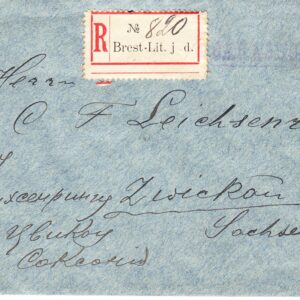 R № 820
Brest-Lit. j d.
Herrn
C F Leichsenr
Zwickau
Цвикау Sachse
Саксонiя